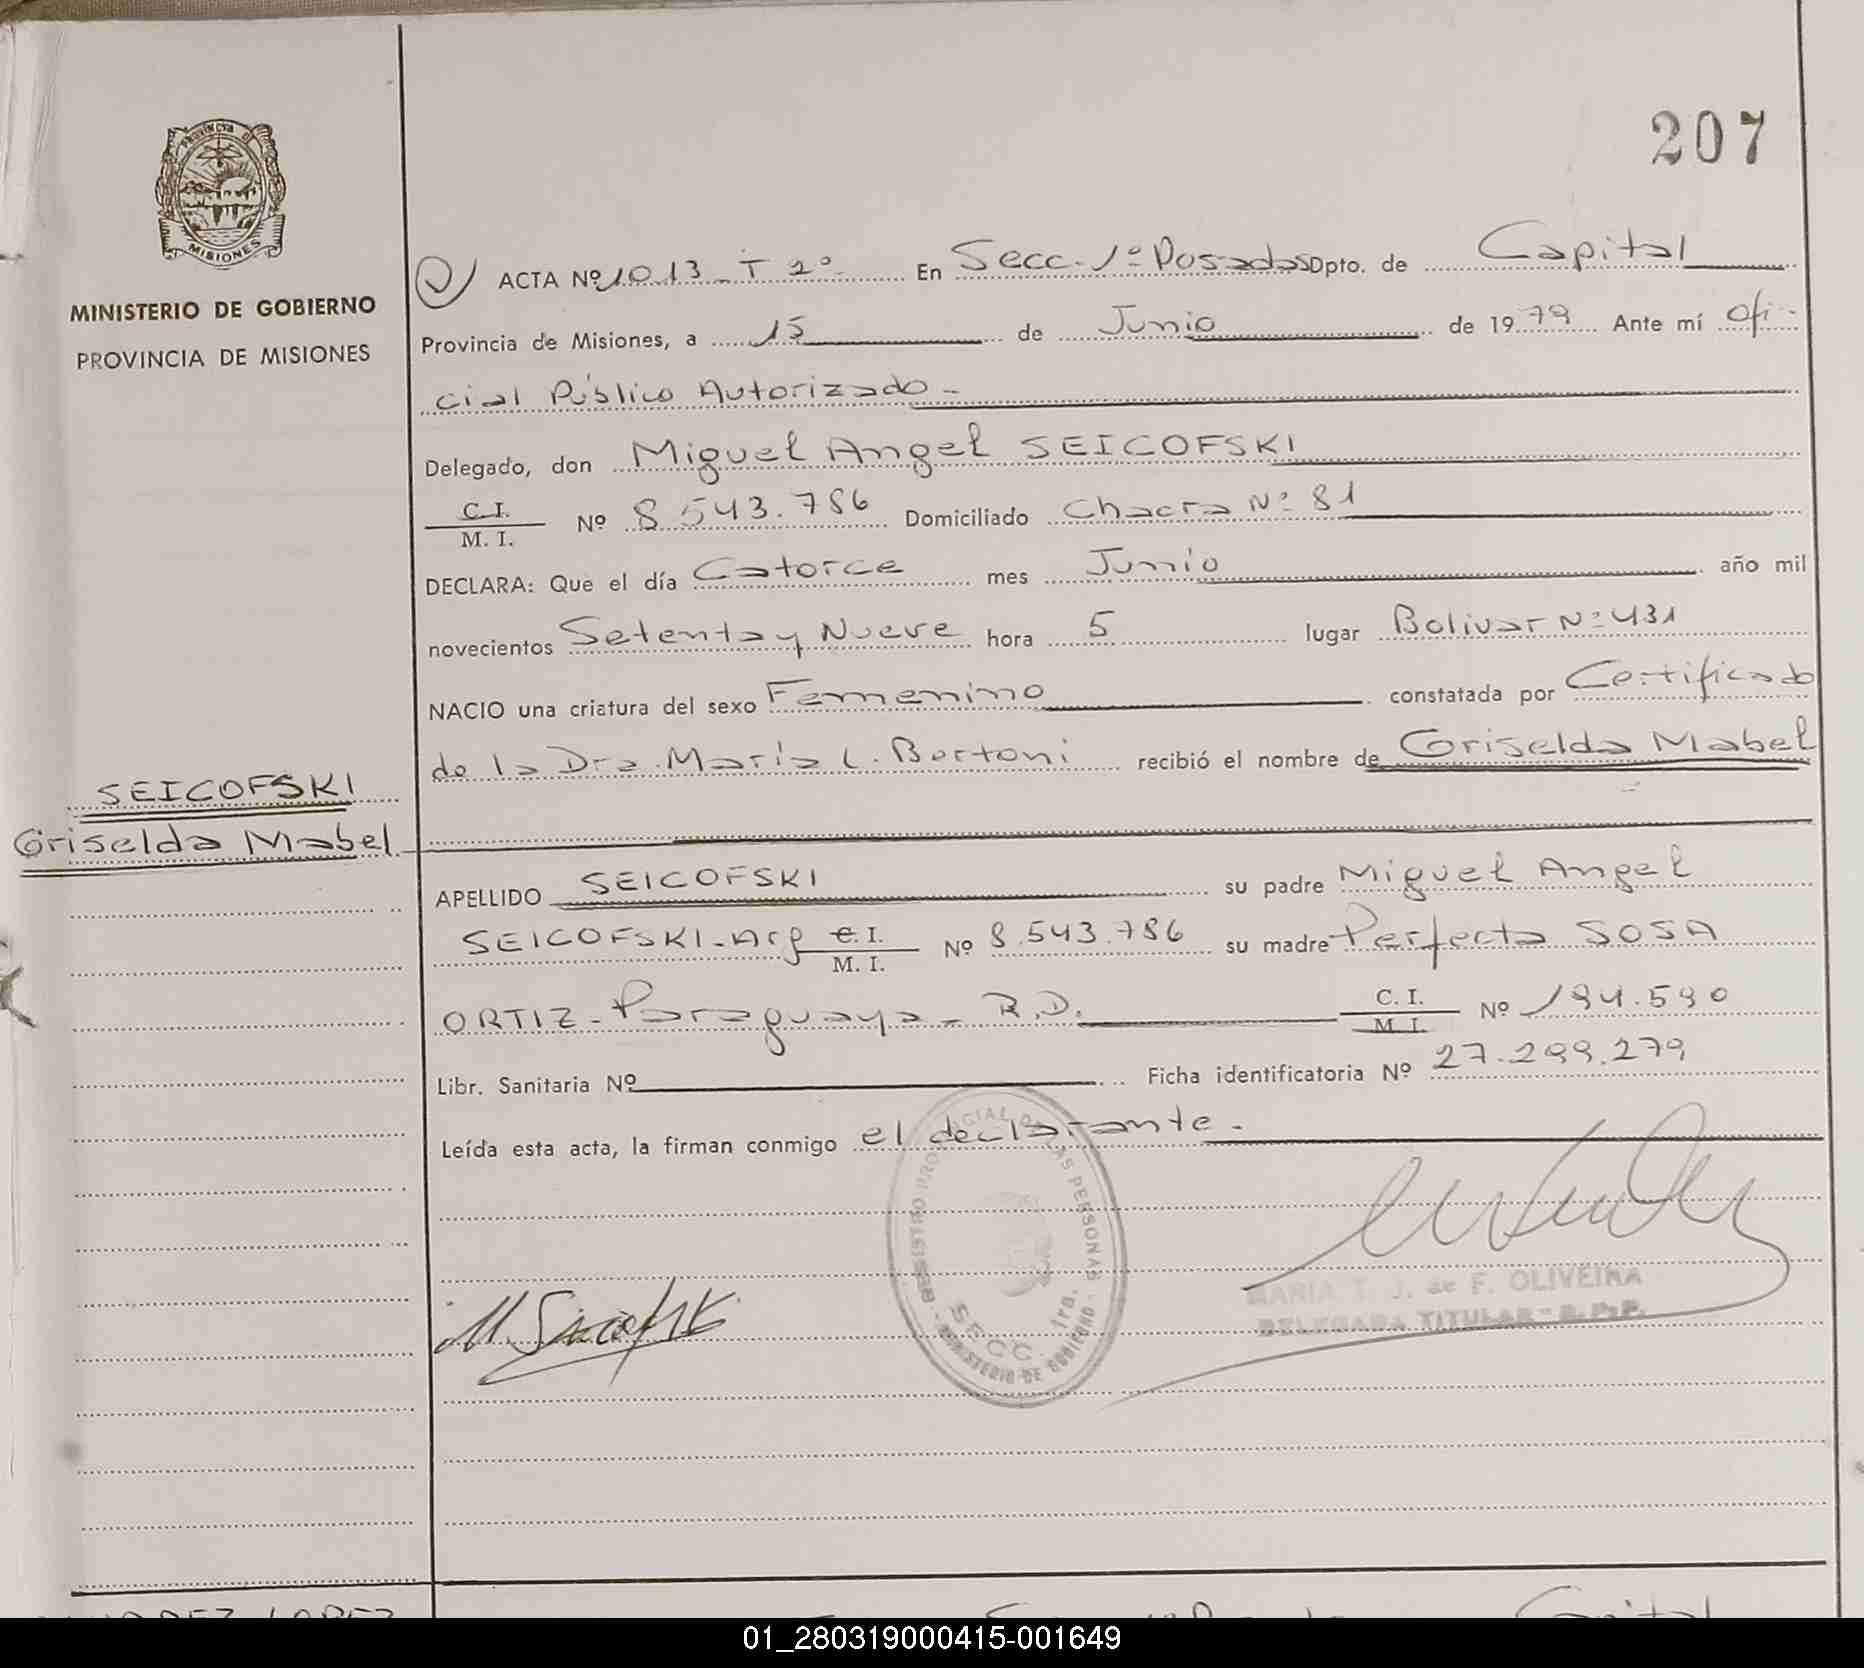 207
PROVINCIA DE
MISIONES
MINISTERIO DE GOBIERNO
PROVINCIA DE MISIONES
ACTA Nº 1013_T 2º_ En Secc. 1º Posadas Dpto. de Capital
Provincia de Misiones, a 15 de Junio de 1979 Ante mí Ofi-
cial Público Autorizado_
Delegado, don Miguel Angel SEICOFSKI
C. I.
M. I. Nº 8.543.786 Domiciliado Chacra Nº 81
DECLARA: Que el día Catorce mes Junio año mil
novecientos Setenta y Nueve hora 5 lugar Bolivar Nº 431
NACIO una criatura del sexo Femenino constatada por Certificado
de la Dra. María L. Bertoni recibió el nombre de Griselda Mabel
SEICOFSKI
Griselda Mabel
APELLIDO SEICOFSKI su padre Miguel Angel
SEICOFSKI_Arg C. I.
M. I. Nº 8.543.786 su madre Perfecta SOSA
ORTIZ_Paraguaya_ R.D. C. I.
M. I. Nº 194.590
Libr. Sanitaria Nº Ficha identificatoria Nº 27.299.279
Leída esta acta, la firman conmigo el declarante.
REGISTRO PROVINCIAL DE LAS PERSONAS
SECC. 1ra.
MINISTERIO DE GOBIERNO
MARIA T. J. de F. OLIVEIRA
DELEGADA TITULAR - R.P.P.
LOPEZ
Capital
01_280319000415-001649